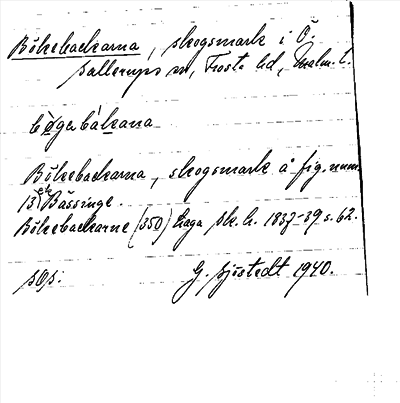 Bökebackarna, skogsmark i Ö.
Sallerups sn, Frosta hd, Malm. l.
bø̀gəbákana
Bökebackarna, skogsmark å fig. num.
13 Bässinge.
Bökebackarne (350) Laga sk. h. 1837-39 s. 62.
G. Sjöstedt 1940.